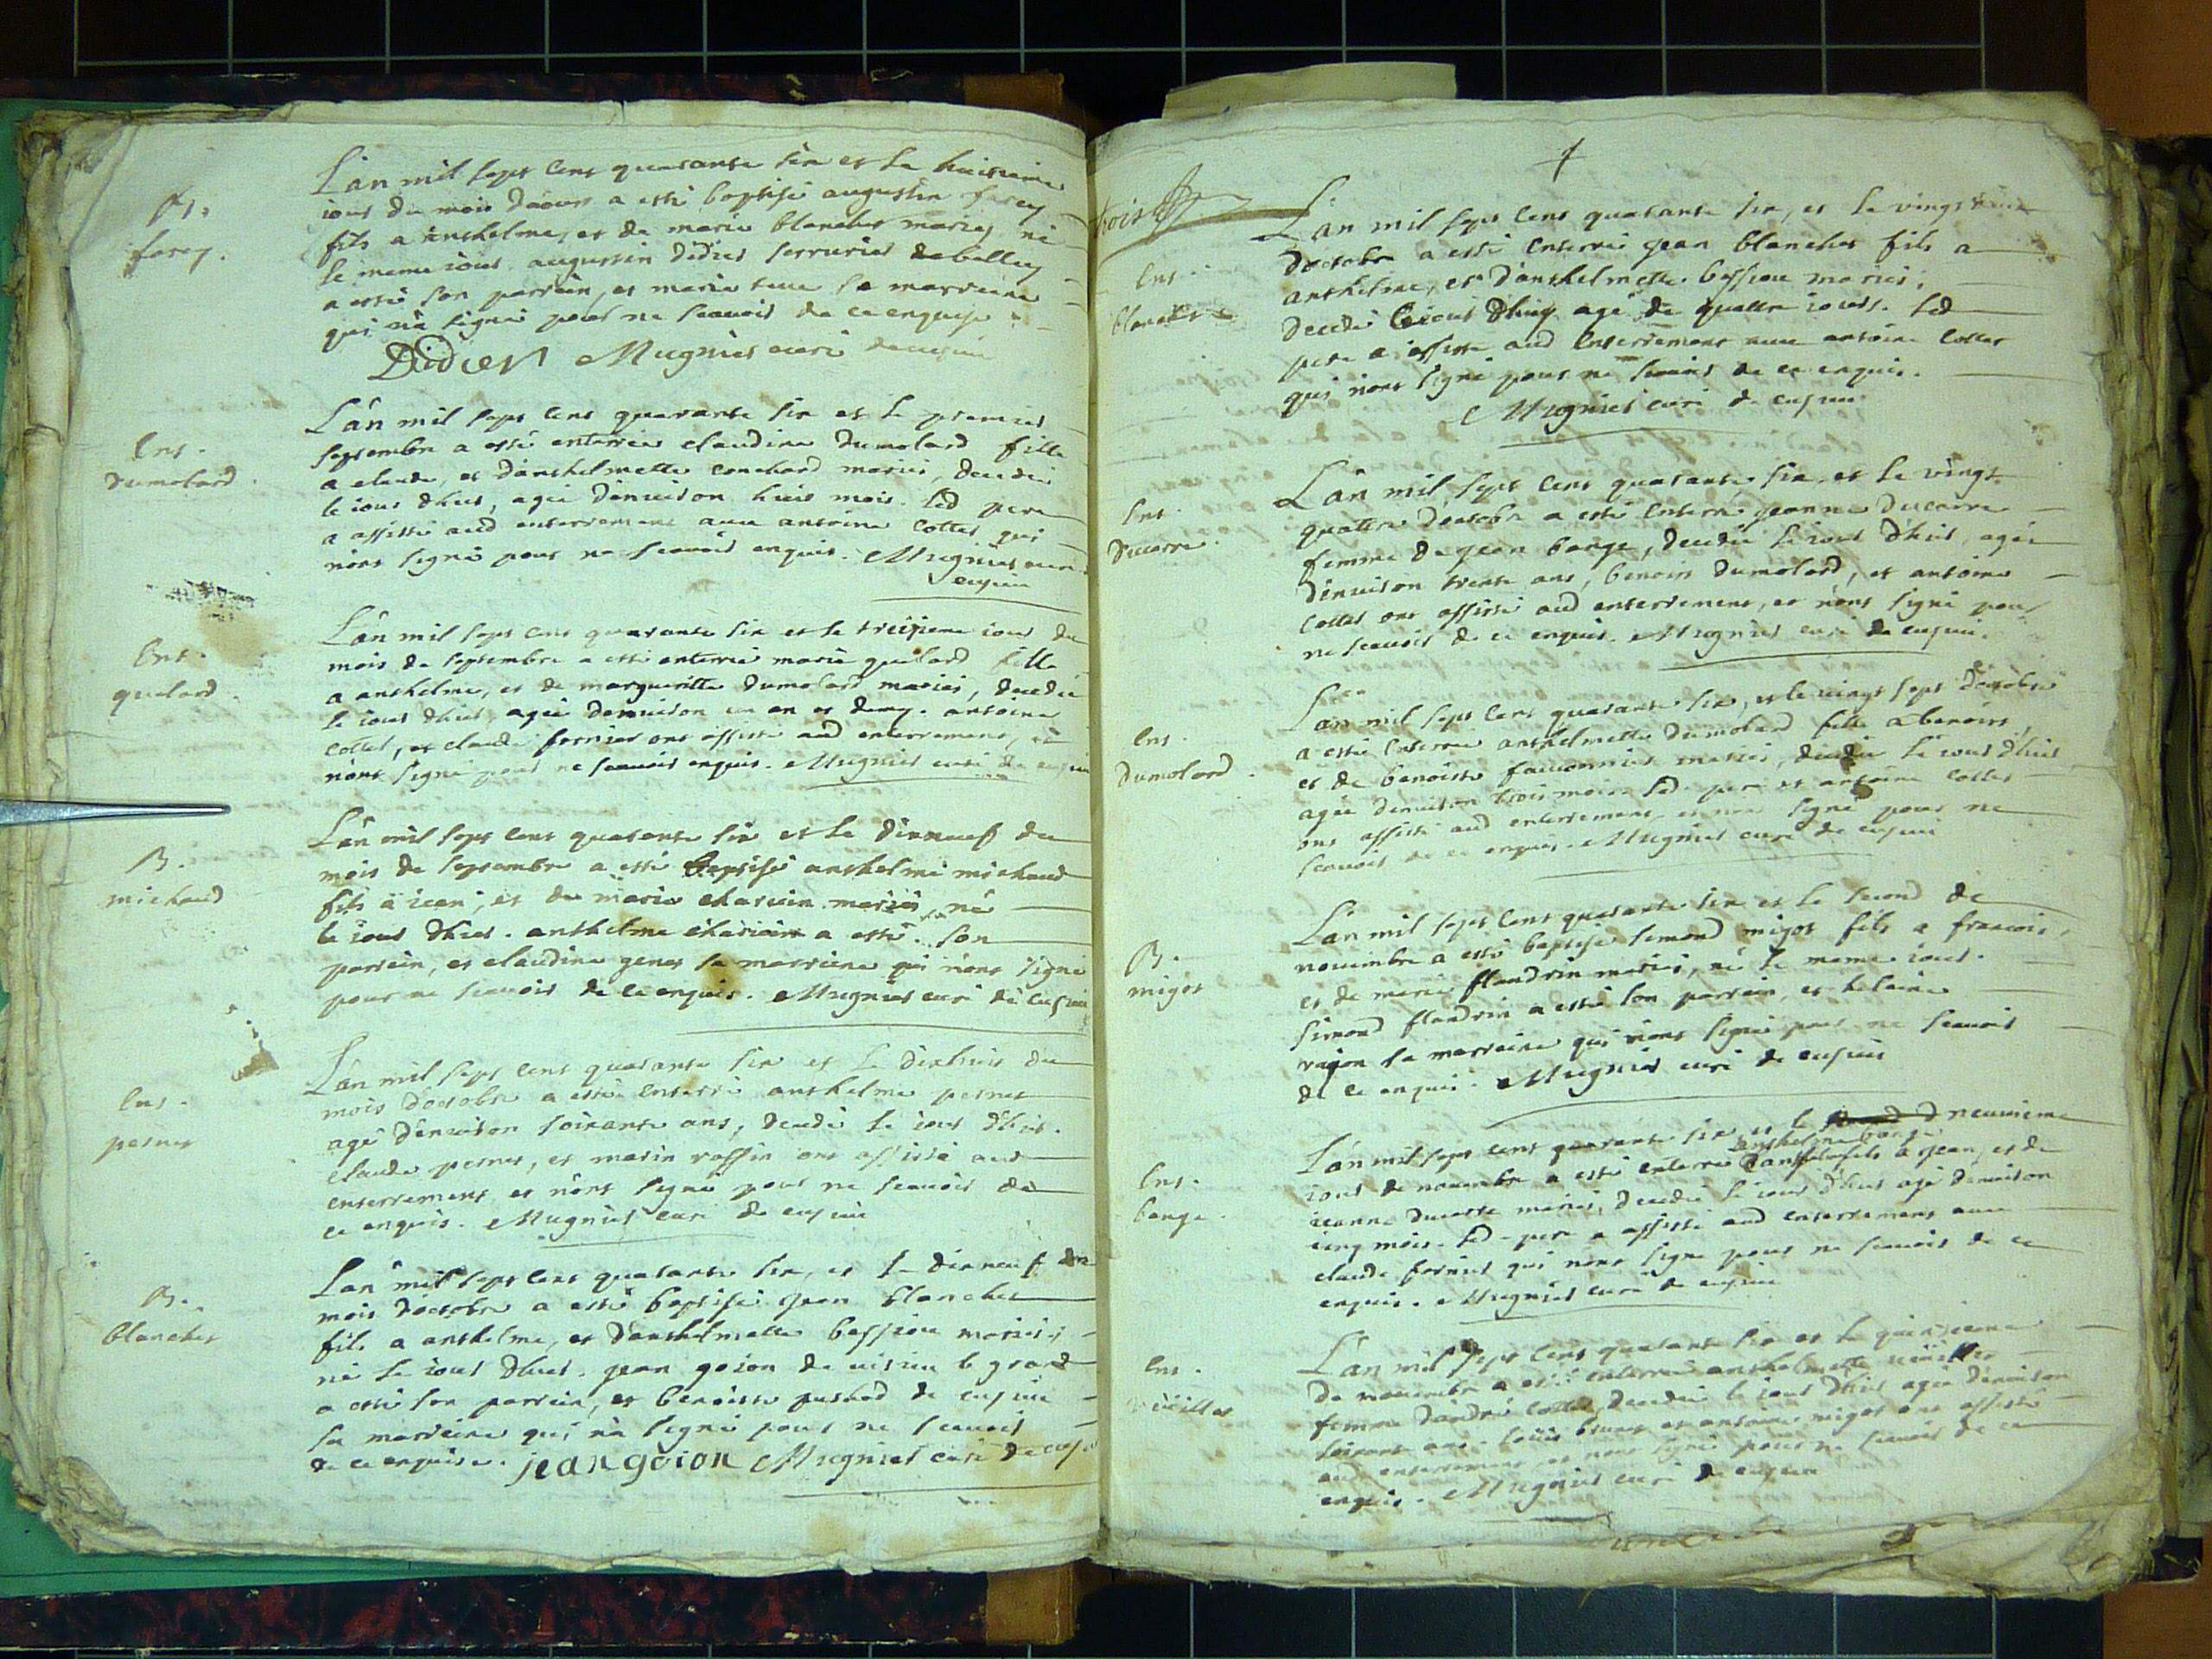 B.
farcy.
L'an mil sept cens quarante six et le huitieme
iour du mois daoust a esté baptisé augustin farcy
fils a anthelme, et de marie blanchet mariés, né
le meme iour. augustin didier serrurier de belley
a esté son parrein, et marie sa marreine
qui n'a signé pour ne scauoir de ce enquise
Didier Mugnier curé de cusieu
Ent.
Dumolard.
L'an mil sept cens quarante six et le premier
septembre a esté enterrée claudine Dumolard fille
a claude, et d'anthelmette couchard mariés, decedée
le iour d'hier, agée d'enuiron huit mois. led pere
a assisté aud enterrement auec antoine Cottet qui
n'ont signé pour ne scauoir enquis. Mugnier curé
cusieu
Ent.
guelard.
L'an mil sept cens quarante six et le treizieme iour du
mois de septembre a esté enterrée marie guelard fille
a anthelme, et de margueritte Dumolard mariés, decedée
le iour d'hier, agée d'enuiron un an et demy. antoine
cottet, et claude fornier ont assisté aud enterrement, et
n'ont signé pour ne scauoir enquis. Mugnier curé de cusieu
B.
michaud
L'an mil sept cens quarante six et le dixneuf du
mois de septembre a esté baptisé anthelme michaud
fils a iean, et de marie charuin mariés, né
le iour d'hier. anthelme charuin a esté son
parrein, et claudine genet sa marreine qui n'ont signé
pour ne scauoir de ce enquis. Mugnier curé de cusieu
Ent.
pernet
L'an mil sept cens quarante six et le dixhuit du
mois d'octobre a esté enterré anthelme pernet
agé d'enuiron soixante ans, decedé le iour d'hier.
claude pernet, et marin raffin ont assisté aud
enterrement et n'ont signé pour ne scauoir de
ce enquis. Mugnier curé de cusieu
B.
blanchet
L'an mil sept cens quarante six, et le dixneuf du
mois d'octobre a esté baptisé jean blanchet
fils a anthelme, et d'anthelmette bessieu mariés,
né le iour d'hier. jean goion de uirieu le grand
a esté son parrein, et benoiste de cusieu
sa marreine qui n'a signé pour ne scauoir
de ce enquise. jean goion Mugnier curé de cusieu
trois
Ent.
blanchet
L'an mil sept cens quarante six, et le vingt
d'octobre a esté enterré jean blanchet fils a
anthelme, et d'anthelmette bessieu mariés,
decedé le iour d'hier agé de quattre iours. led
pere a assisté aud enterrement auec antoine Cottet
qui n'ont signé pour ne scauoir de ce enquis.
Mugnier curé de cusieu
Ent.
Ducarre.
L'an mil sept cens quarante six, et le vingt
quattre d'octobre a esté enterré jeanne Ducarre
femme de jean barge, decedée le iour d'hier, agée
d'enuiron trente ans, benoit Dumolard, et antoine
Cottet ont assisté aud enterrement, et n'ont signé pour
ne scauoir de ce enquis. Mugnier curé de cusieu.
Ent.
Dumolard.
L'an mil sept cens quarante six, et le vingt sept d'octobre
a esté enterrée anthelmette Dumolard fille a benoit,
et de benoiste fauconnier mariés, decedée le iour d'hier
agée d'enuiron trois mois. led. pere et antoine Cottet
ont assisté aud enterrement, et n'ont signé pour ne
scauoir de ce enquis. Mugnier curé de cusieu
B.
migot
L'an mil sept cens quarante six et le second de
nouembre a esté baptisé simond migot fils a francois,
et de marie flandrin mariés, né le meme iour.
simond flandrin a esté son parrein, et helaine
sa marreine qui n'ont signé pour ne scauoir
de ce enquis. Mugnier curé de cusieu
Ent.
barge.
L'an mil sept cens quarante six, et le second neuuieme
iour de nouembre a esté enterré anthelme barge fils a jean, et de
ieanne ducarre mariés, decedé le iour d'hier agé d'enuiron
cinq mois. led. pere a assisté aud enterrement auec
claude fornier qui n'ont signé pour ne scauoir de ce
enquis. Mugnier curé de cusieu
Ent.
L'an mil sept cens quarante six et le quinzieme
de nouembre a esté enterrée anthelmette
femme d'andré Cottet, decedée le iour d'hier agée d'enuiron
soixante ans. louis brunet et antoine migot ont assisté
aud enterrement, et n'ont signé pour ne scauoir de ce
enquis. Mugnier curé de cusieu